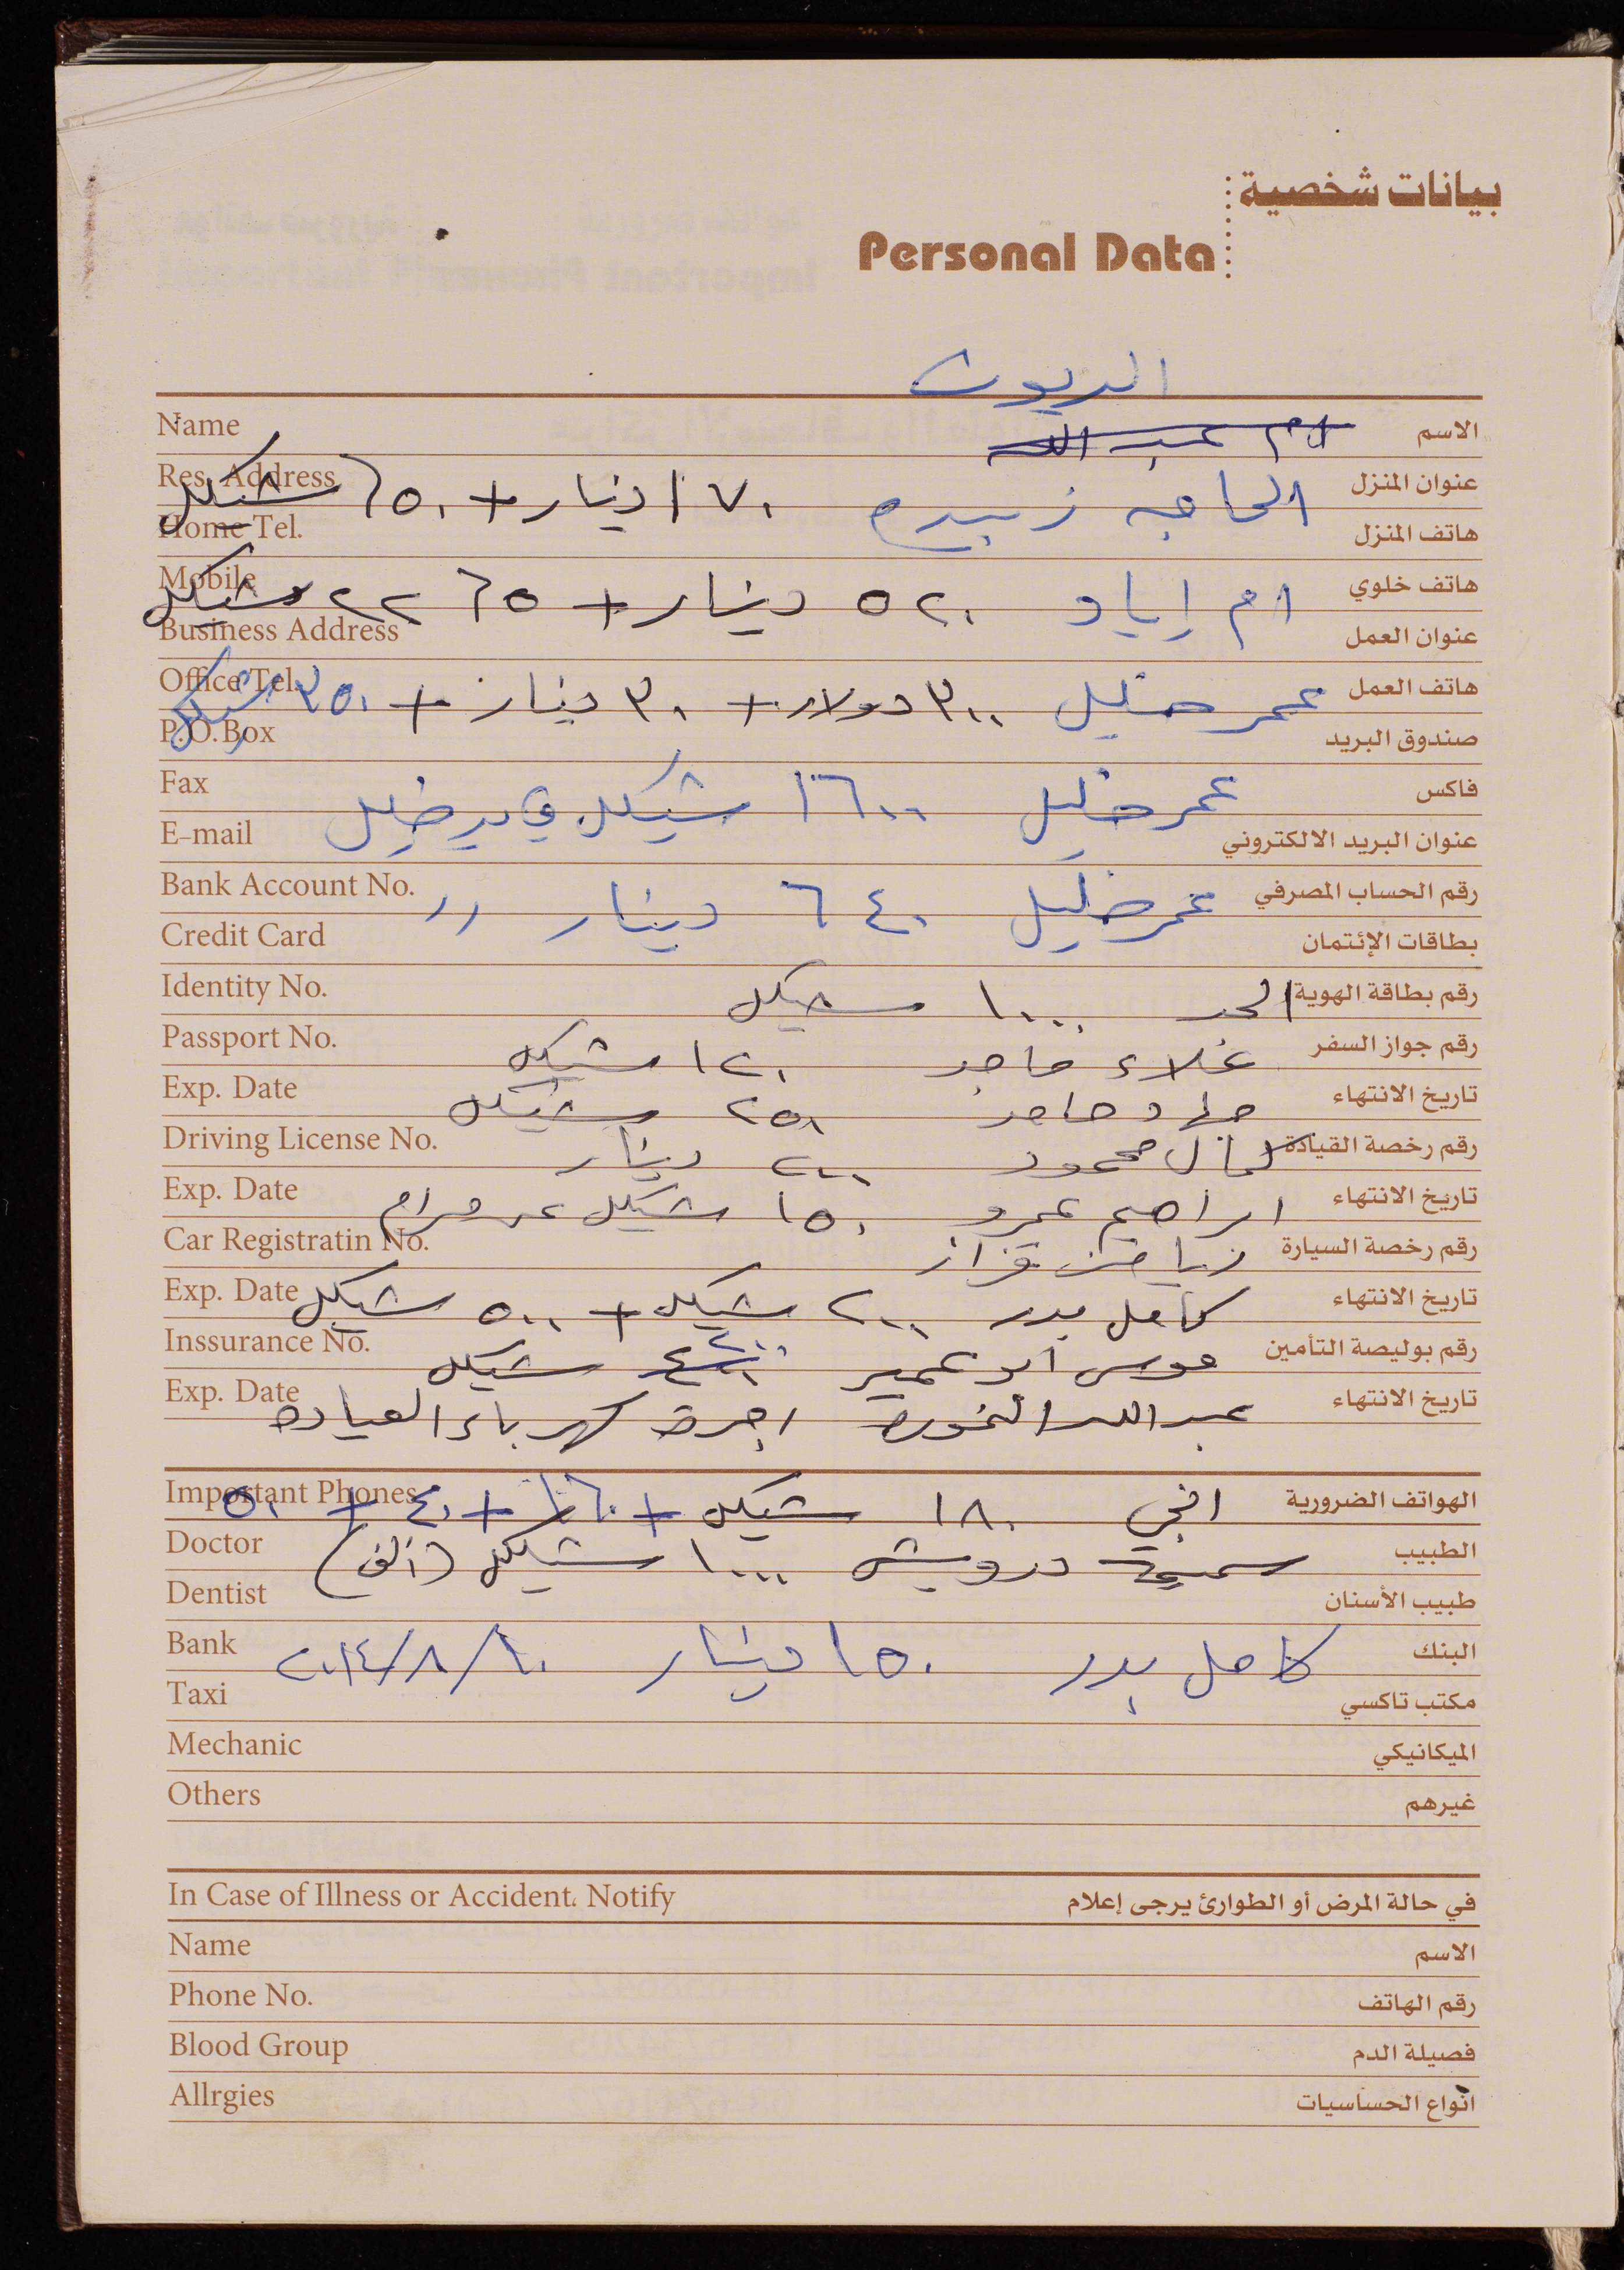 بيانات شخصية
Personal Data
الديون
Name ام عبد الله الاسم
Res. Address عنوان المنزل
الحاجه زبيده ١٧٠ دينار + ٦٥٠ شيكل
Home Tel. هاتف المنزل
Mobile هاتف خلوي
ام إياد ٥٢٠ دينار + ٢٢٦٥ شيكل
Business Address عنوان العمل
Office Tel. هاتف العمل
عمر خليل ٣٠٠ دولار + ٣٠ دينار + ٣٥٠ شيكل
P.O.Box صندوق البريد
Fax فاكس
عمر خليل ١٦٠٠ شيكل في
E-mail عنوان البريد الالكتروني
Bank Account No. رقم الحساب المصرفي
عمر خليل ٦٤٠ دينار //
Credit Card بطاقات الإئتمان
Identity No. رقم بطاقة الهوية
١٠٠٠ شيكل
Passport No. رقم جواز السفر
علاء ١٢٠ شيكل
Exp. Date تاريخ الانتهاء
٢٥٠ شيكل
Driving License No. رقم رخصة القيادة
كمال محمود ٢٠٠ دينار
Exp. Date تاريخ الانتهاء
ابراهيم عمرو ١٥٠ شيكل
Car Registratin No. رقم رخصة السيارة
رياض قزاز
Exp. Date تاريخ الانتهاء
كامل بدر ٢٠٠ شيكل + ٥٠٠ شيكل
Inssurance No. رقم بوليصة التأمين
موسى ابو عمير شيكل
Exp. Date تاريخ الانتهاء
عبد الله اجرة كهرباء العيادة
Important Phones الهواتف الضرورية
اخي ١٨٠ شيكل + ١٦٠ + ٤٠ + ٥٠
Doctor الطبيب
سميح درويش ١٠٠٠ شيكل (الف)
Dentist طبيب الأسنان
Bank البنك
كامل بدر ١٥٠ دينار ٢٠١٤/٨/١٠
Taxi مكتب تاكسي
Mechanic الميكانيكي
Others غيرهم
In Case of Illness or Accident. Notify في حالة المرض أو الطوارئ يرجى إعلام
Name الاسم
Phone No. رقم الهاتف
Blood Group فصيلة الدم
Allrgies انواع الحساسيات